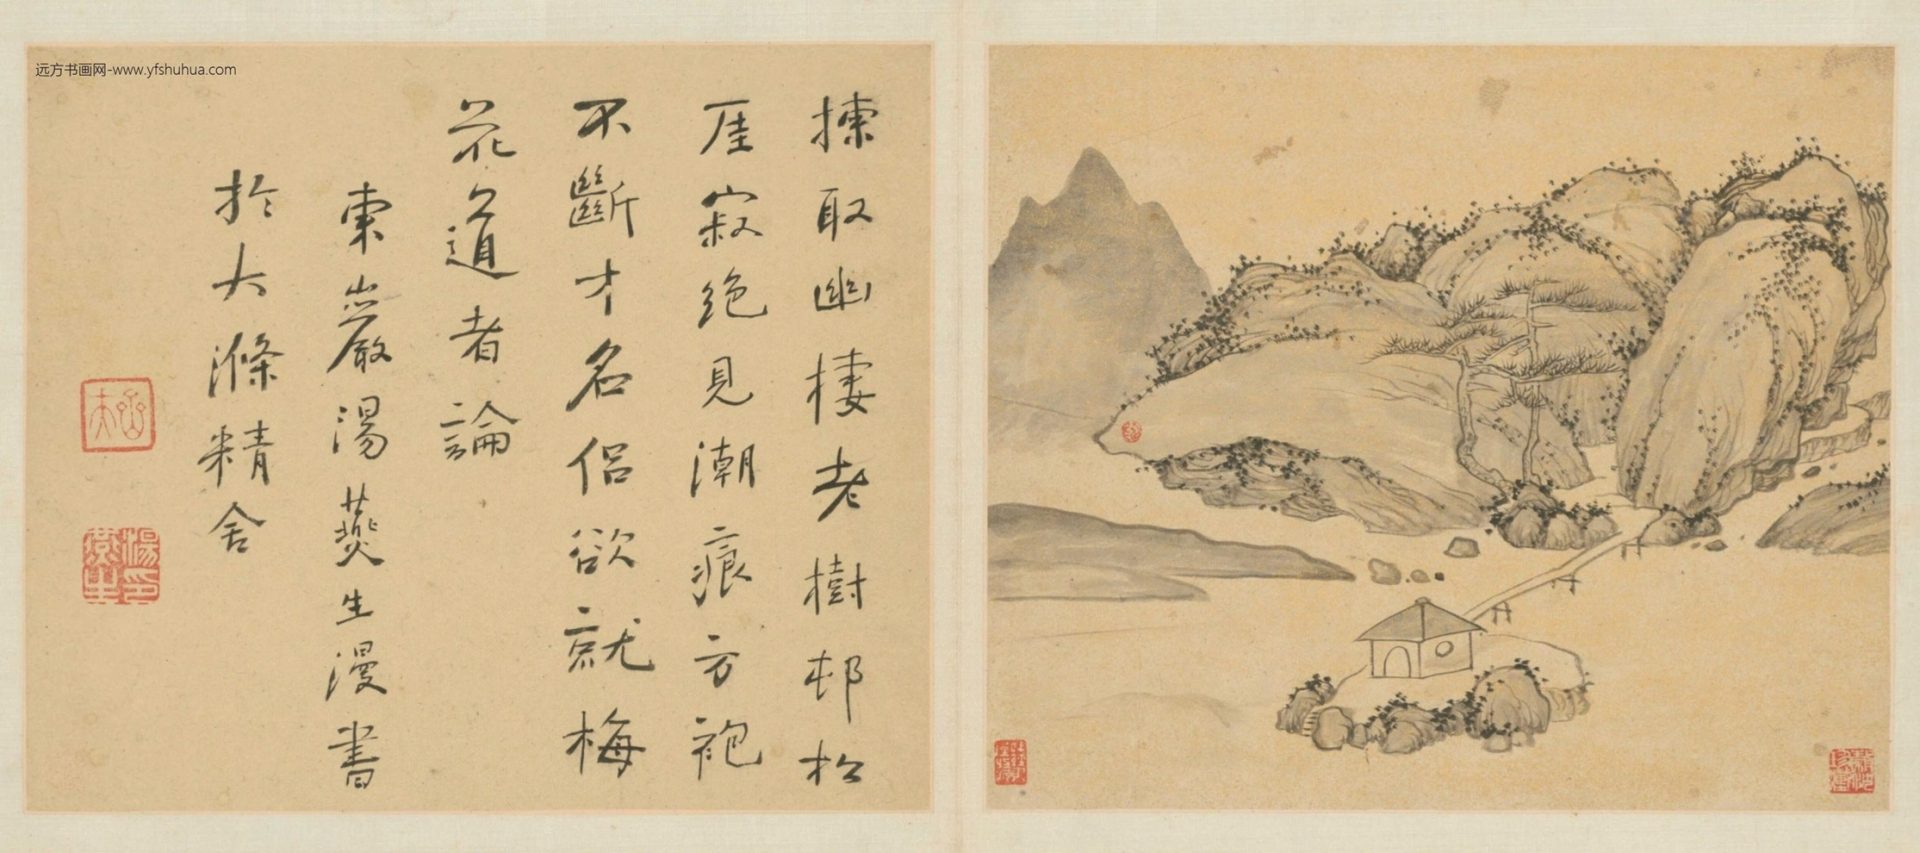 远方书画网-www.yfshuhua.com
揀取幽棲老樹邨松
厓寂絕見潮痕方袍
不斷才名侶欲就梅
花道者論
東巖湯燕生漫書
於大滌精舍